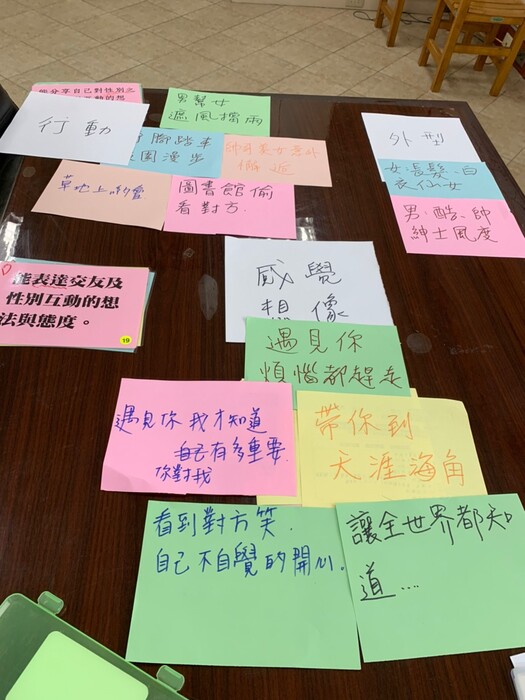 能分享自己對性別之
動的想
行動
男幫女
遮風擋雨
腳踏車
園漫步
帥哥美女意外
草地上
圖書館偷
看對方
外型
女、長髮、白
衣仙女
男、酷、帥
紳士風度
能表達交友及
性別互動的想
法與態度。
19
感覺
想像
遇見你
煩惱都趕走
遇見你 我才知道
自己有多重要
你對我
帶你到
天涯海角
看到對方笑,
自己不自覺的開心.
讓全世界都知
道....